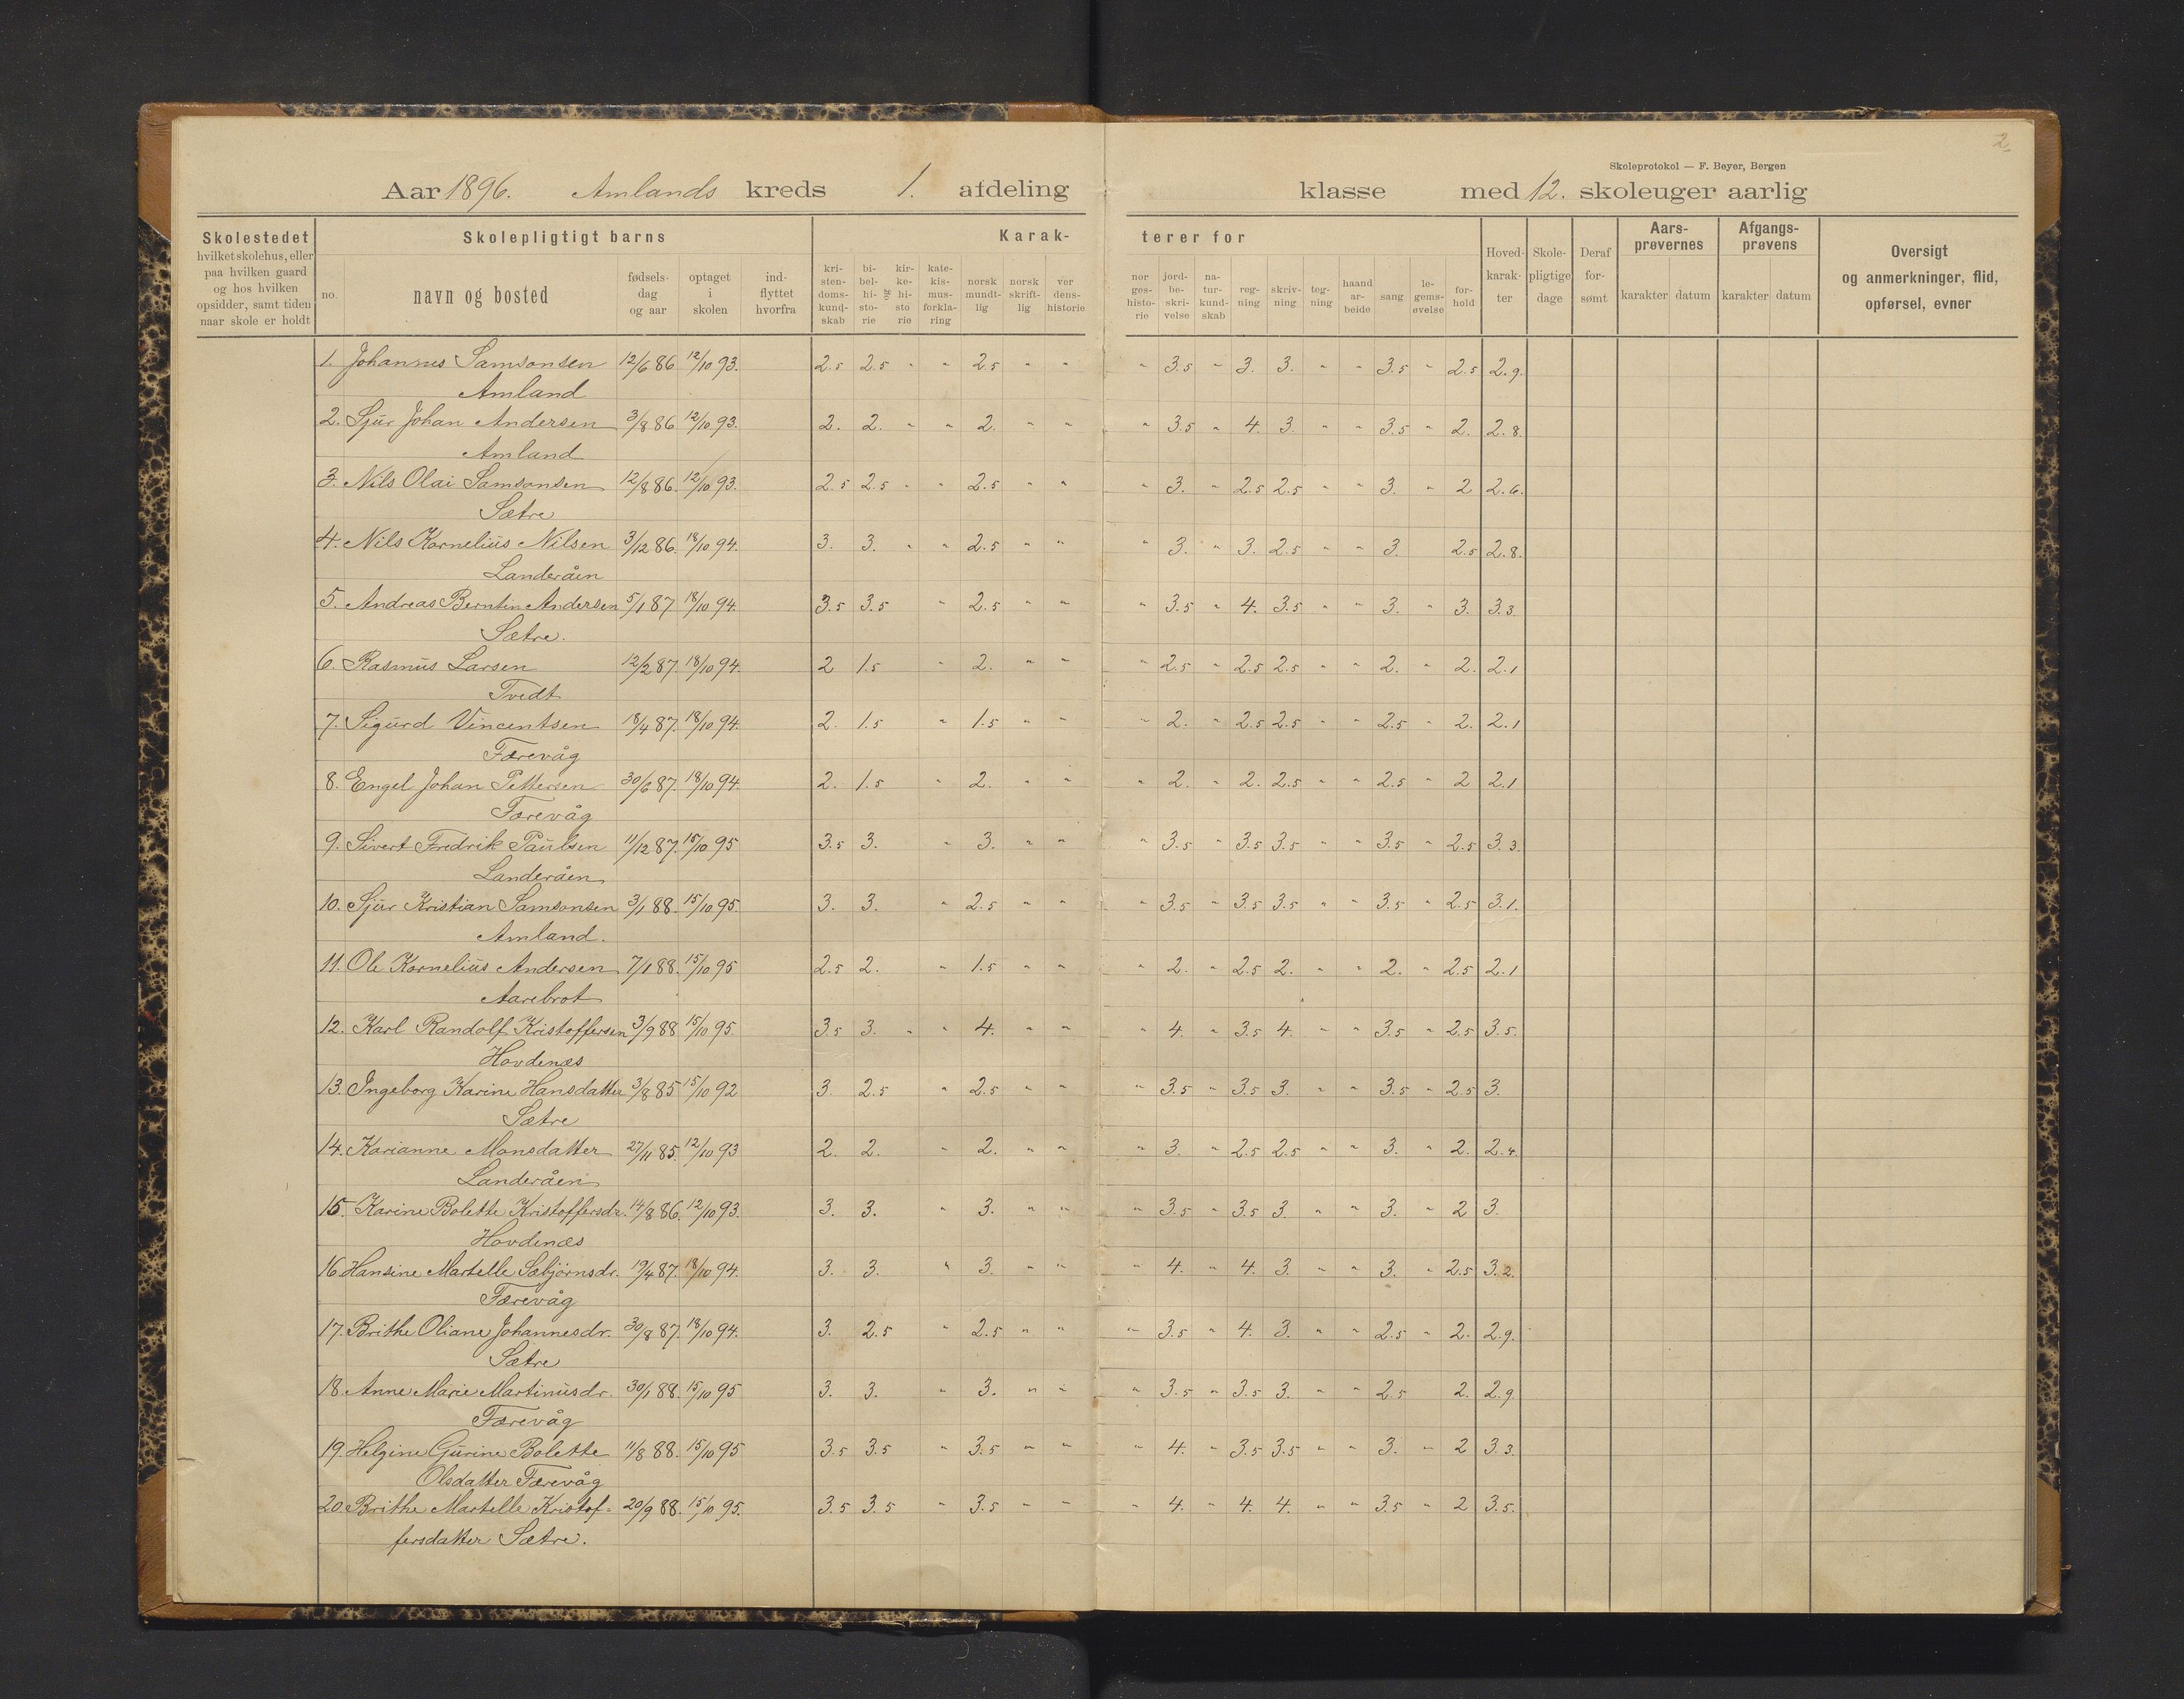 2
Skoleprotokol — F. Beyer, Bergen
Aar 1896. Amlands kreds 1. afdeling klasse med 12. skoleuger aarlig
Skolestedet hvilket skolehus, eller paa hvilken gaard og hos hvilken opsidder, samt tiden naar skole er holdt
Skolepligtigt barns
no. navn og bosted fødsels-dag og aar optaget i skolen ind-flyttet hvorfra
Karak- terer for
kri-sten-doms-kund-skab bi-bel-hi-sto-rie og kir-ke-hi-sto rie kate-kis-mus-forkla-ring norsk mundt-lig norsk skrift-lig ver dens-historie
nor ges-histo-rie jord-be-skri-velse na-tur-kund-skab reg-ning skriv-ning teg-ning haand ar-beide sang le-gems-øvelse for-hold
Hoved-karak-ter Skole-pligtige dage Deraf for-sømt
Aars-prøvernes karakter datum
Afgangs-prøvens karakter datum
Oversigt og anmerkninger, flid, opførsel, evner
1. Johannes Samsonsen 12/6 86 12/10 93. 2.5 2.5 " " 2.5 " " " 3.5 " 3. 3. " " 3.5 " 2.5 2.9.
Amland
2. Sjur Johan Andersen 3/8 86 12/10 93. 2. 2. " " 2. " " " 3.5 " 4. 3. " " 3.5 " 2. 2.8.
Amland
3. Nils Olai Samsonsen 12/8 86. 12/10 93. 2.5 2.5 " " 2.5 " " " 3. " 2.5 2.5 " " 3. " 2 2.6.
Sætre
4. Nils Kornelius Nilsen 3/12 86. 18/10 94. 3. 3. " " 2.5 " " " 3. " 3. 2.5 " " 3. 2.5 2.8.
Landeråen
5. Andreas Berntin Andersen 5/1 87 18/10 94. 3.5 3.5 " 2.5 " " " 3.5 " 4. 3.5 " " 3. " 3. 3.3
Sætre.
6. Rasmus Larsen 12/2 87. 18/10 94. 2 1.5 " 2. " " " 2.5 " 2.5 2.5 " " 2. " 2. 2.1
Tvedt
7. Sigurd Vincentsen 18/4 87. 18/10 94. 2. 1.5 " 1.5 " " " 2. " 2.5 2.5 " " 2.5 " 2. 2.1
Færevåg
8. Engel Johan Pettersen 30/6 87. 18/10 94. 2. 1.5 " 2. " " " 2. " 2. 2.5 " " 2.5 " 2 2.1
Færevåg
9. Sivert Fredrik Paulsen 11/12 87. 15/10 95 3.5 3. " 3. " " " 3.5 " 3.5 3.5 " " 3.5 " 2.5 3.3.
Landeråen
10. Sjur Kristian Samsonsen 3/1 88. 15/10 95. 3. 3. " 2.5 " " " 3.5 " 3.5 3.5 " " 3.5 " 2.5 3.1.
Amland.
11. Ole Kornelius Andersen 7/1 88. 15/10 95 2.5 2. " 1.5 " " " 2. " 2.5 2. " " 2. " 2.5 2.1
Aarebrot
12. Karl Randolf Kristoffersen 3/9 88 15/10 95. 3.5 3. " " 4. " " " 4. " 3.5 4. " " 3.5 " 2.5 3.5.
Hovdenæs
13. Ingeborg Karine Hansdatter 3/8 85 15/10 92 3. 2.5 " 2.5 " " " 3.5 " 3.5 3. " " 3.5 " 2.5 3.
Sætre
14. Karianne Monsdatter 27/11 85. 12/10 93 2. 2. " 2. " " " 3. " 2.5 2.5 " " 3. " 2. 2.4.
Landeråen
15. Karine Bolette Kristoffersdr. 14/8 86. 12/10 93. 3. 3. " 3. " " " 3.5 " 3.5 3 " " 3. " 2 3.
Hovdenæs
16. Hansine Martelle Sæbjørnsdr. 19/4 87. 18/10 94. 3. 3. " 3. " " " 4. " 4. 3 " " 3. " 2.5 3.2.
Færevåg
17. Brithe Oliane Johannesdr. 30/8 87. 18/10 94. 3. 2.5 " 2.5 " " " 3.5 " 4. 3. " " 2.5 " 2. 2.9.
Sætre
18. Anne Marie Martinusdr. 30/1 88. 15/10 95 3. 3. " 3. " " " 3.5 " 3.5 3. " " 2.5 2. 2.9.
Færevåg
19. Helgine Gurine Bolette 11/8 88. 15/10 95 3.5 3.5 " 3.5 " " " 4. " 3.5 3.5 " " 3. " 2 3.3.
Olsdatter Færevåg
20. Brithe Martelle Kristof- 20/9 88. 15/10 95. 3.5 3.5 " 3.5 " " " 4. " 4. 4. " " 3.5 " 2 3.5.
fersdatter Sætre.